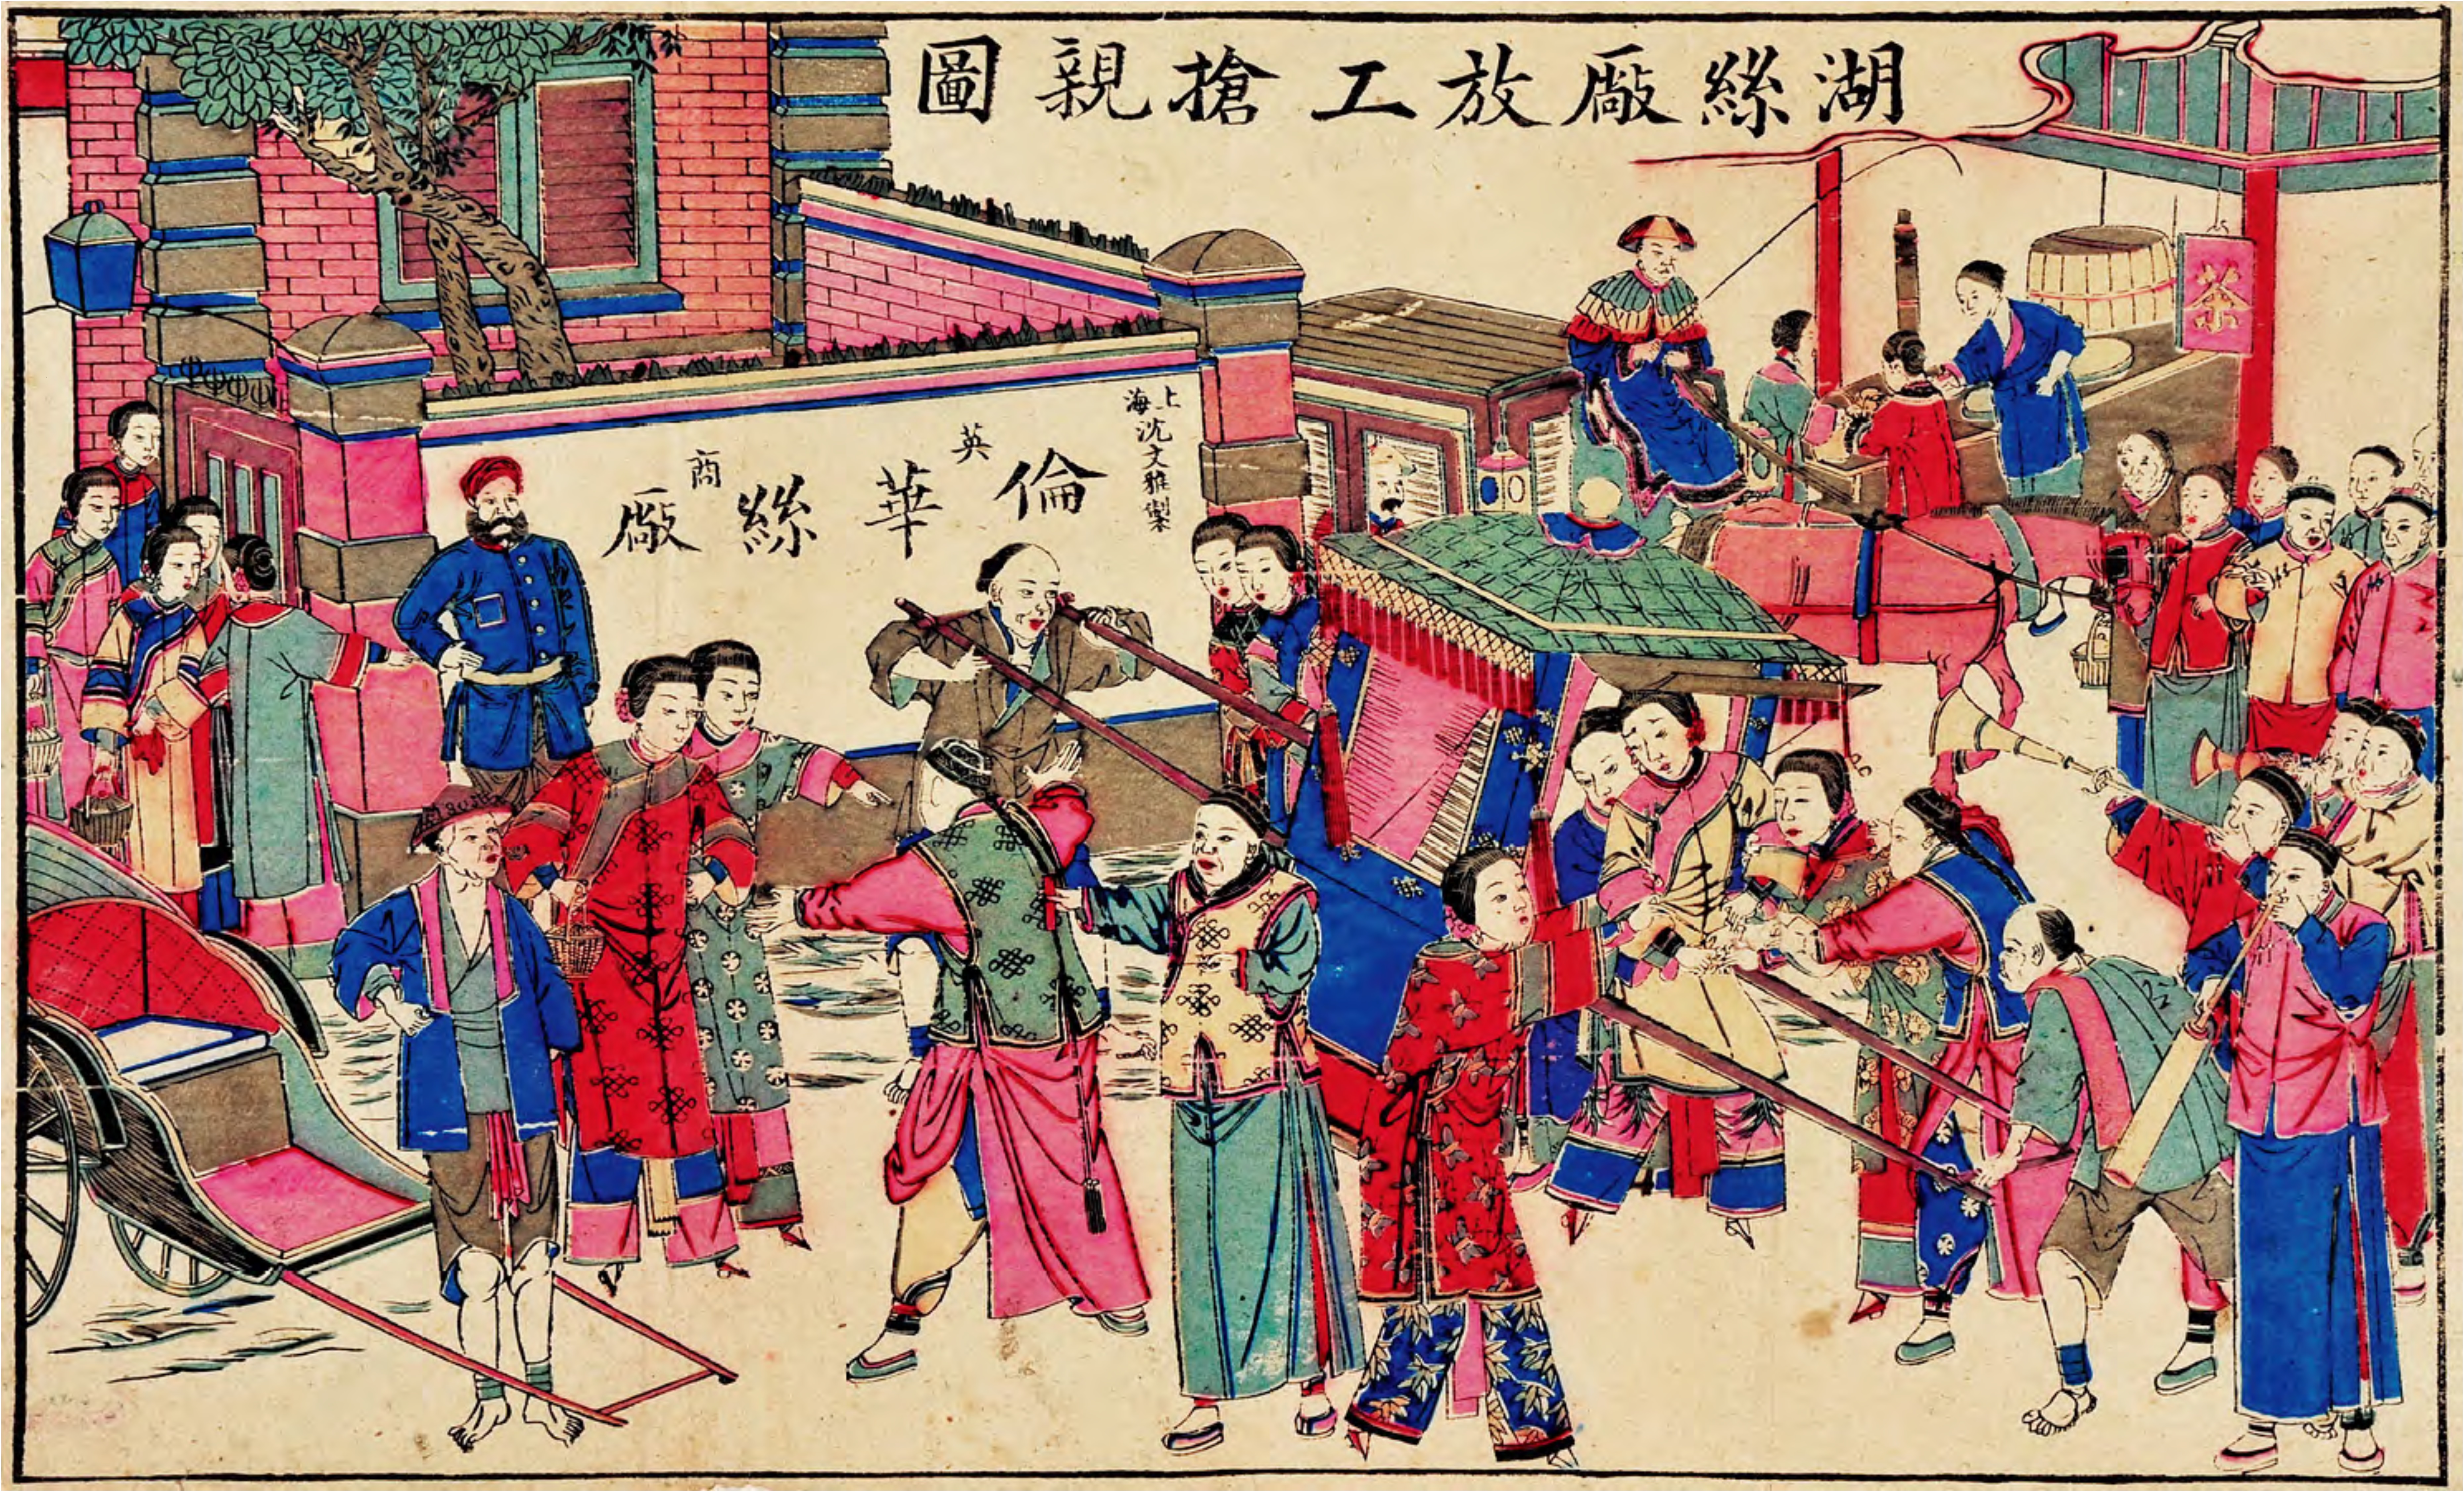 湖絲厰放工搶親圖
上海沈文雅製
英商
倫華絲厰
茶